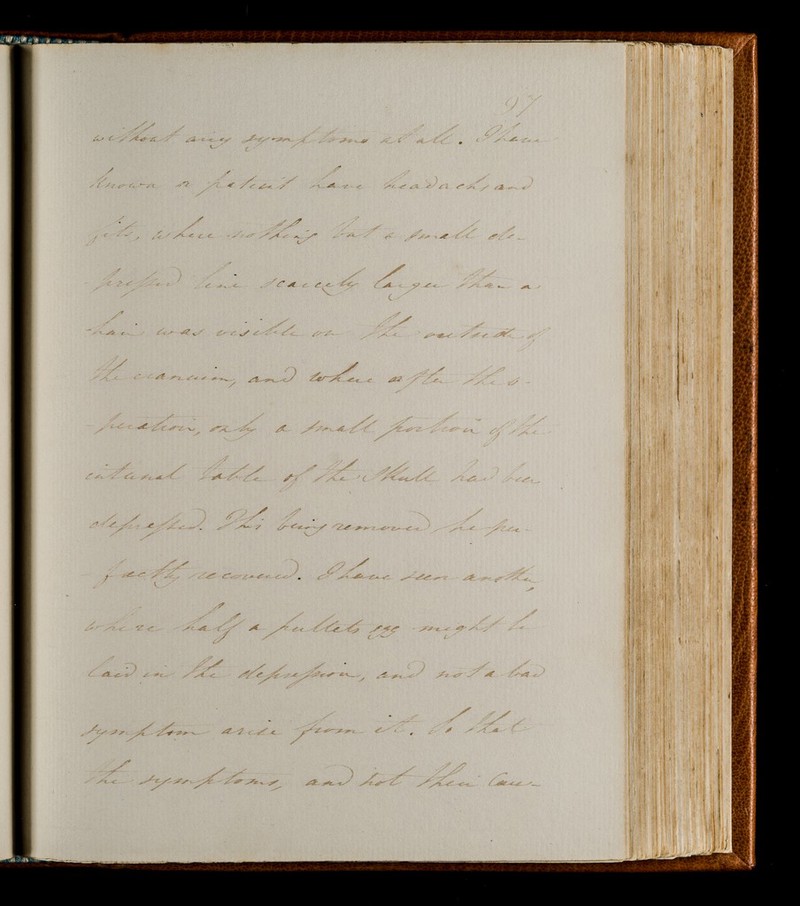 97
without any symptoms at all. I have
known a patient have headachs and
fits, where nothing but a small de-
-pressed line scarcely larger than a
hair was visible on the outside of
the cranium, and where after the o-
-peration, only a small portion of the
internal table of the Skull had been
depressed. This being removed he per-
-fectly recovered. I have seen another,
where half a pullets egg might be
laid in the depression, and not a bad
symptom arise from it. So that
the symptoms, and not their Cau-